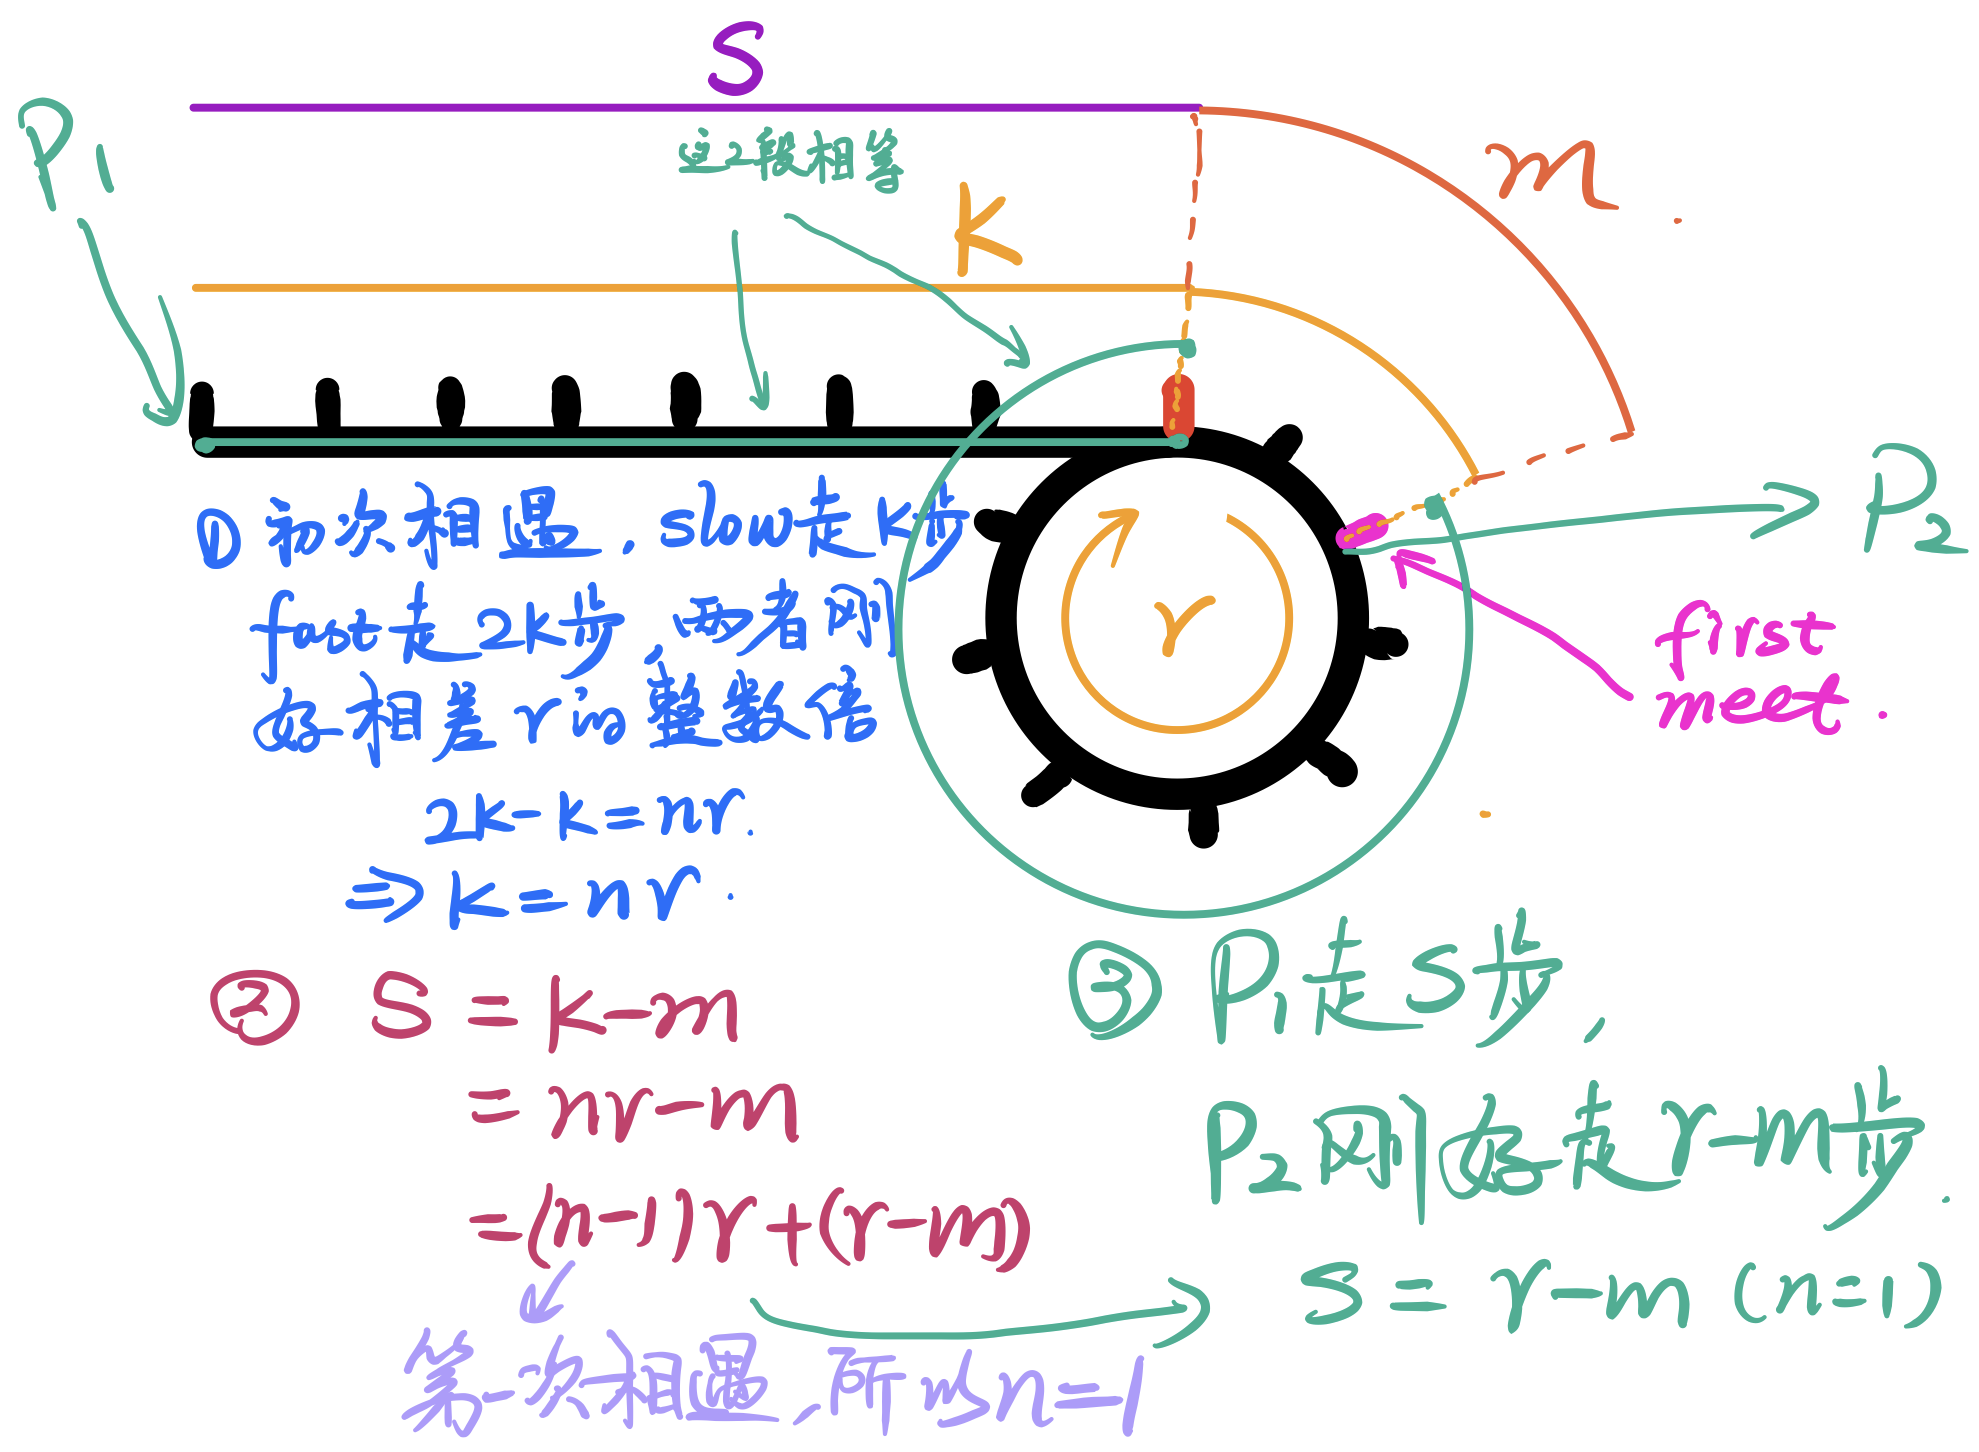 S
P1
这2段相等
m
K
P2
r
first
meet.
① 初次相遇,slow走K步
fast走2k步,两者刚
好相差r的整数倍
2k-k=nr.
⇒k=nr.
② S=k-m
=nr-m
=(n-1)r+(r-m)
第一次相遇,所以n=1
③ P1走S步,
P2刚好走r-m步.
S=r-m (n=1)